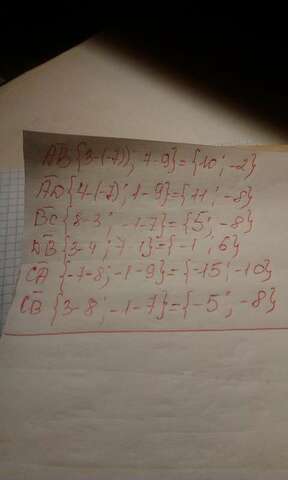 AB{3-(-7)); 7-9}={10; -2}
AD{4-(-7); 1-9}={11; -8}
BC{8-3; -1-7}={5; -8}
DB{3-4; 7-1}={-1; 6}
CA{-7-8; -1-9}={-15; -10}
CB{3-8; -1-7}={-5; -8}